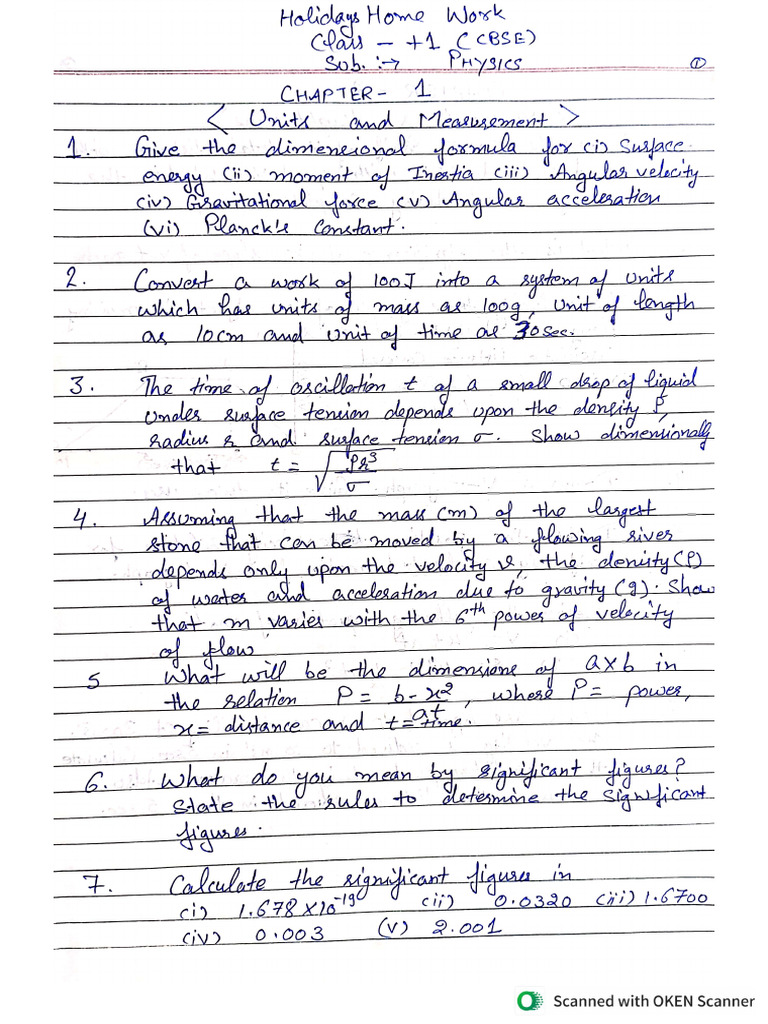 Holidays Home Work
Class - +1 (CBSE)
Sub. :→ PHYSICS ①
CHAPTER - 1
< Units and Measurement >
1. Give the dimensional formula for (i) Surface
energy (ii) moment of Inertia (iii) Angular velocity
(iv) Gravitational force (v) Angular acceleration
(vi) Planck's Constant.
2. Convert a work of 100J into a system of units
which has units of mass as 100g, unit of length
as 10cm and unit of time as 30sec.
3. The time of oscillation t of a small drop of liquid
under surface tension depends upon the density ρ,
radius r and surface tension σ. Show dimensionally
that t = √(ρr³/σ)
4. Assuming that the mass (m) of the largest
stone that can be moved by a flowing river
depends only upon the velocity v, the density (ρ)
of water and acceleration due to gravity (g). Show
that m varies with the 6th power of velocity
of flow.
5 What will be the dimensions of a×b in
the relation P = b-x²/at, where P = power,
x = distance and t = time.
6. What do you mean by significant figures?
State the rules to determine the significant
figures.
7. Calculate the significant figures in
(i) 1.678 × 10⁻¹⁹ (ii) 0.0320 (iii) 1.6700
(iv) 0.003 (v) 2.001
Scanned with OKEN Scanner